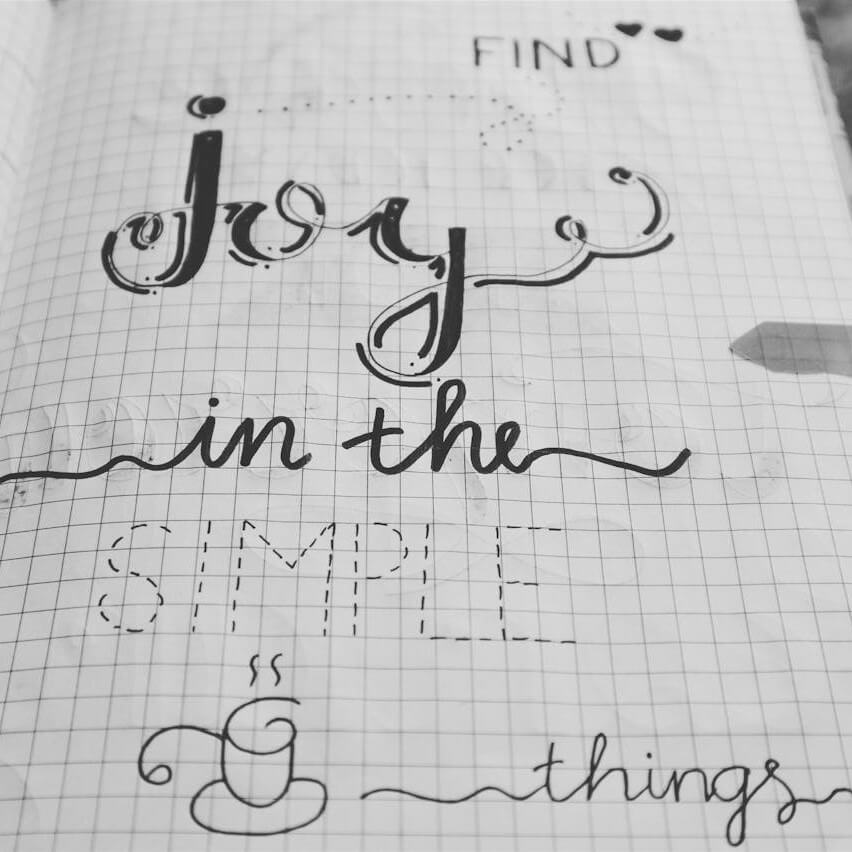 FIND
joy
in the
SIMPLE
things